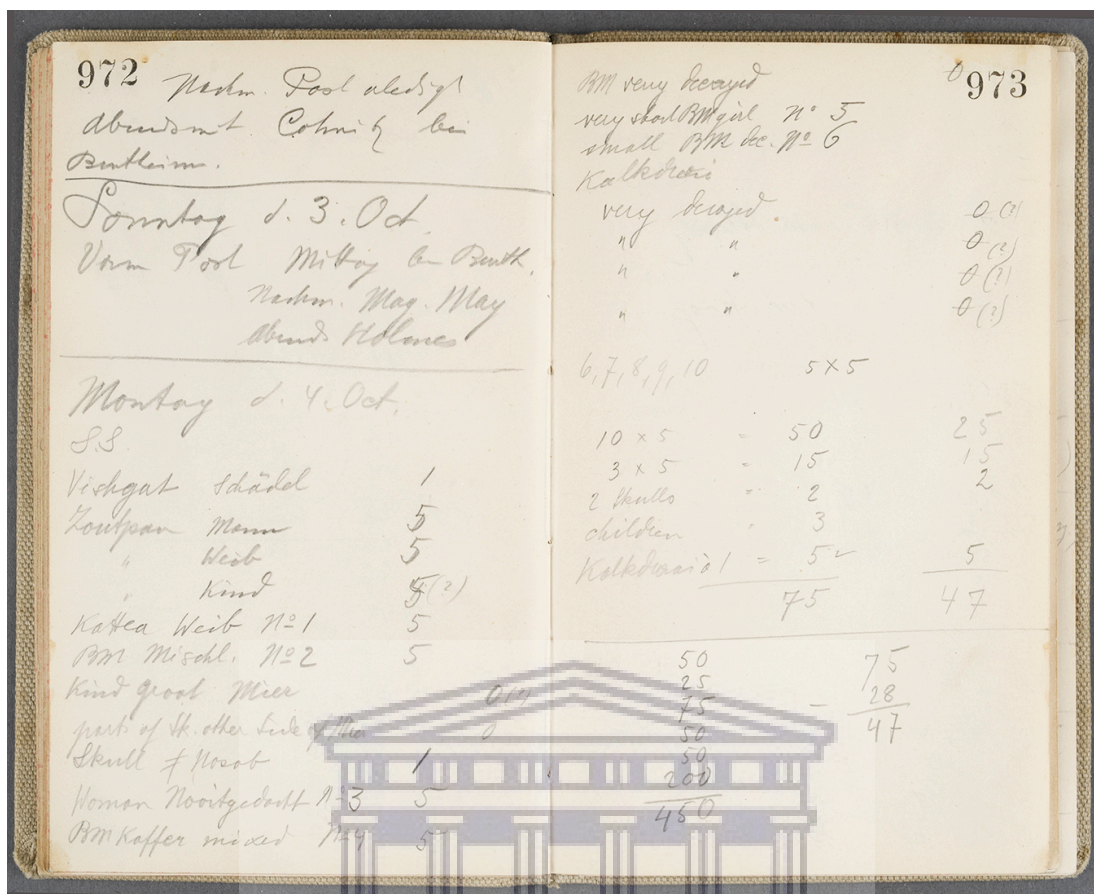 972
Nachm. Post erledigt
Abends mit Cohnitz bei
Bentheim.
Sonntag d. 3. Oct.
Vorm Post Mittag bei Benth.
Nachm. Mag. May
Abends Holmes
Montag d. 4. Oct.
S.S.
Vishgat Schädel 1
Zoutpan Mann 5
" Weib 5
" Kind 5 (?)
Kattea Weib No 1 5
BM Mischl. No 2 5
Kind Groot Mier 0 (?)
parts of Sk. other Side of Mier 0
Skull ‡ Nosob 1
Woman Nooitgedacht No 3 5
BM Kaffer mixed No 4 5
973
BM very decayed
very short BM girl No 5
small BM dec. No 6
Kalkdraai
very decayed. 0 (?)
" " 0 (?)
" " 0 (?)
" " 0 (?)
6, 7, 8, 9, 10 5 x 5
10 x 5 = 50 25
3 x 5 = 15 15
2 Skulls = 2 2
children " 3
Kalkdraai 1 = 5 5
75 47
50 75
25 – 28
75 47
50
50
200
450